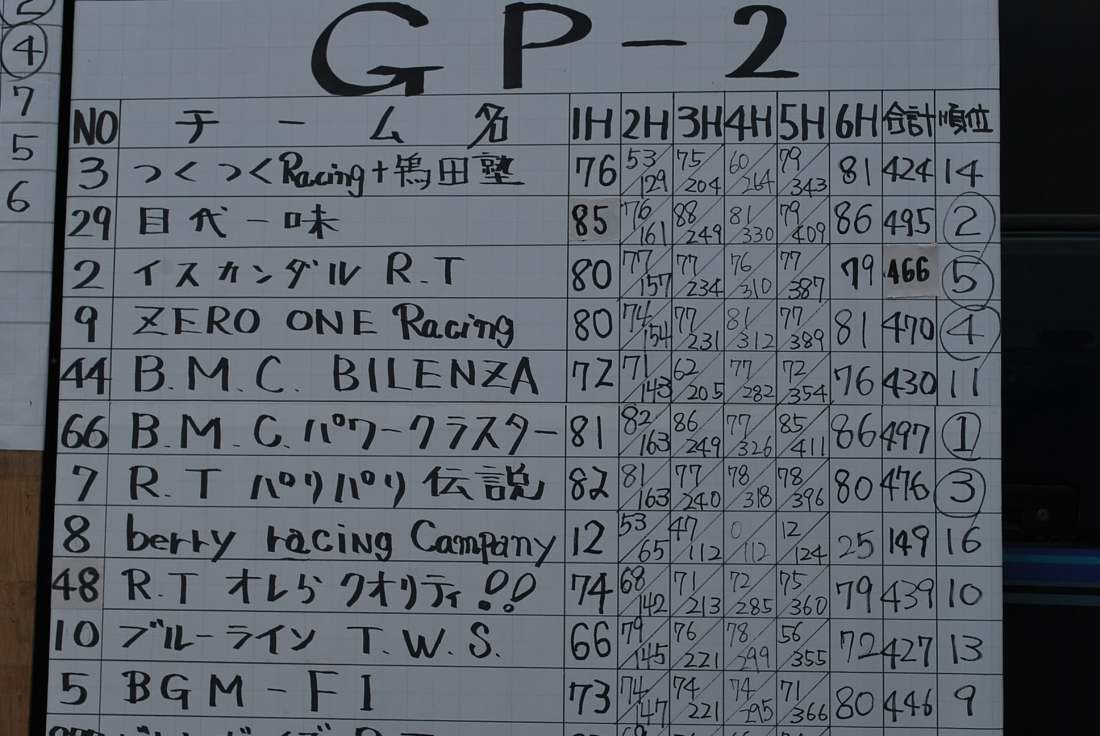 2
4
7
5
6
GP-2
NO チーム名 1H 2H 3H 4H 5H 6H 合計 順位
3 つくつくRacing+鴇田塾 76 53/129 75/204 60/264 79/343 81 424 14
29 目代一味 85 76/161 88/249 81/330 79/409 86 495 2
2 イスカンダル R.T 80 77/157 77/234 76/310 77/387 79 466 5
9 ZERO ONE Racing 80 74/154 77/231 81/312 77/389 81 470 4
44 B.M.C. BILENZA 72 71/143 62/205 77/282 72/354 76 430 11
66 B.M.C.パワークラスター 81 82/163 86/249 77/326 85/411 86 497 1
7 R.T パリパリ伝説 82 81/163 77/240 78/318 78/396 80 476 3
8 berry racing Campany 12 53/65 47/112 0/112 12/124 25 149 16
48 R.T オレらクオリティ!! 74 68/142 71/213 72/285 75/360 79 439 10
10 ブルーライン T.W.S. 66 79/145 76/221 78/299 56/355 72 427 13
5 BGM-FI 73 74/147 74/221 74/295 71/366 80 446 9